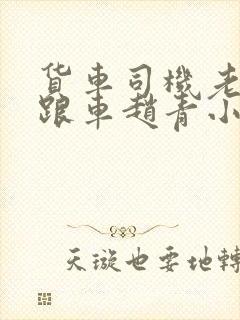 貨車司機老
跟車趙青小
天漩也要地轉